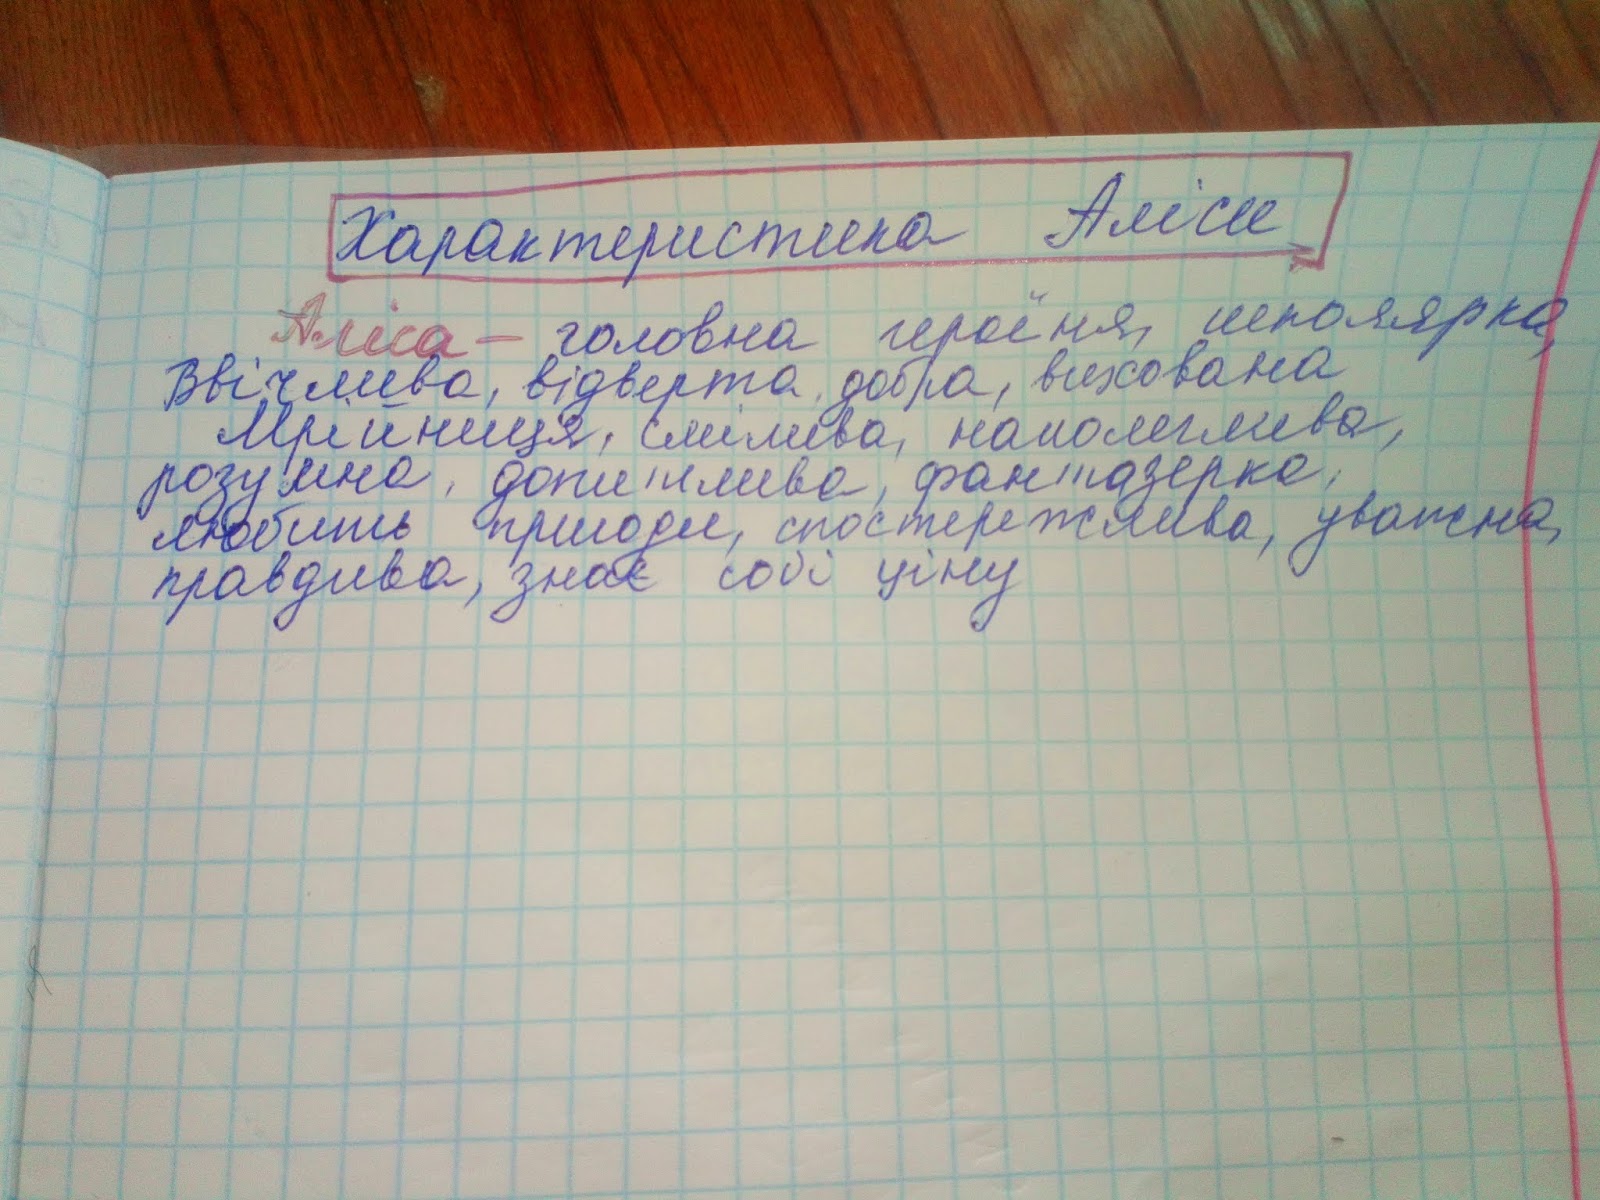 Характеристика Аліси
Аліса – головна героїня, школярка,
Ввічлива, відверта, добра, вихована
Мрійниця, смілива, наполеглива,
розумна, допитлива, фантазерка,
любить пригоди, спостережлива, уважна,
правдива, знає собі ціну